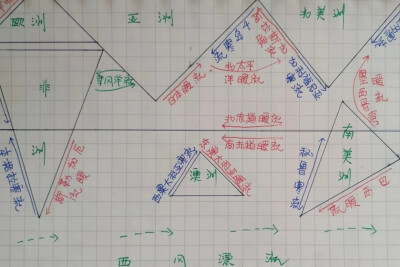 欧洲
亚洲
北美洲
非
洲
季风洋流
日本暖流
千岛寒流
北太平
洋暖流
阿拉斯加
暖流
加利福尼亚
寒流
墨西哥湾
暖流
北赤道暖流
南赤道暖流
西澳大利亚寒流
东澳大利亚暖流
澳洲
秘鲁寒流
南
美
洲
巴西暖流
西风漂流